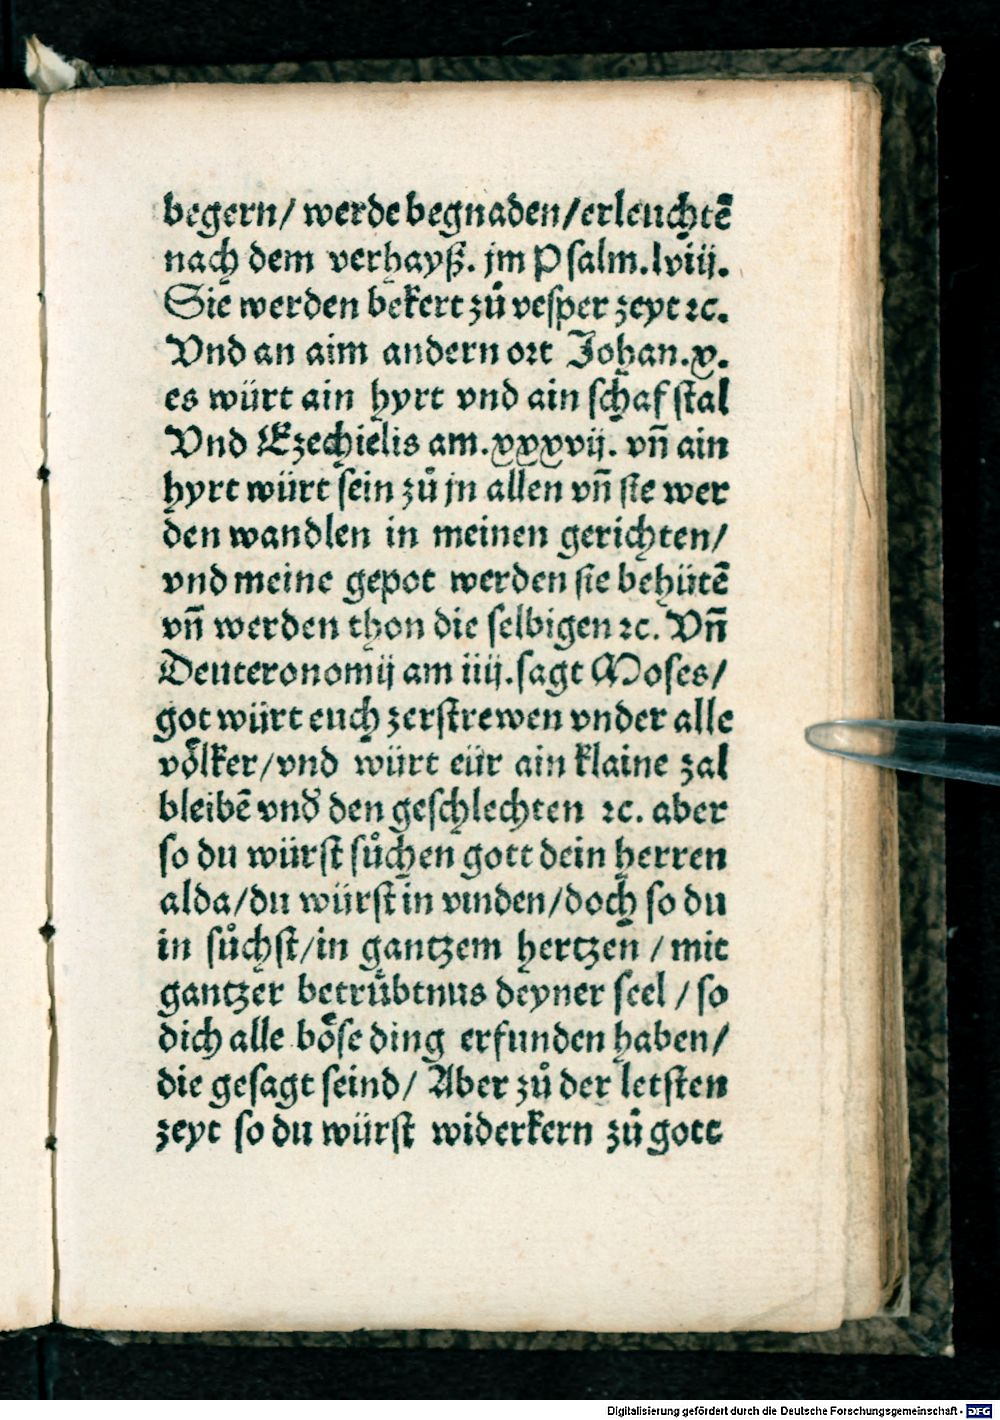 begern/ werde begnaden/erleuchtē
nach dem verhayß. jm Psalm.lviij.
Sie werden bekert zů vesper zeyt ꝛc.
Vnd an aim andern ort Johan.x.
es würt ain hyrt vnd ain schaf stal
Vnd Ezechielis am.xxxvij. vñ ain
hyrt würt sein zů jn allen vñ sie wer
den wandlen in meinen gerichten/
vnd meine gepot werden sie behütē
vñ werden thon die selbigen ꝛc. Vñ
Deuteronomij am iiij.sagt Moses/
got würt euch zerstrewen vnder alle
voͤlker/vnd würt eür ain klaine zal
bleibē vnd᷑ den geschlechten ꝛc. aber
so du würst sůchen gott dein herren
alda/du würst in vinden/doch so du
in sůchst/in gantzem hertzen / mit
gantzer betruͤbtnus deyner seel / so
dich alle boͤse ding erfunden haben/
die gesagt seind/ Aber zů der letsten
zeyt so du würst widerkern zů gott
Digitalisierung gefördert durch die Deutsche Forschungsgemeinschaft - DFG